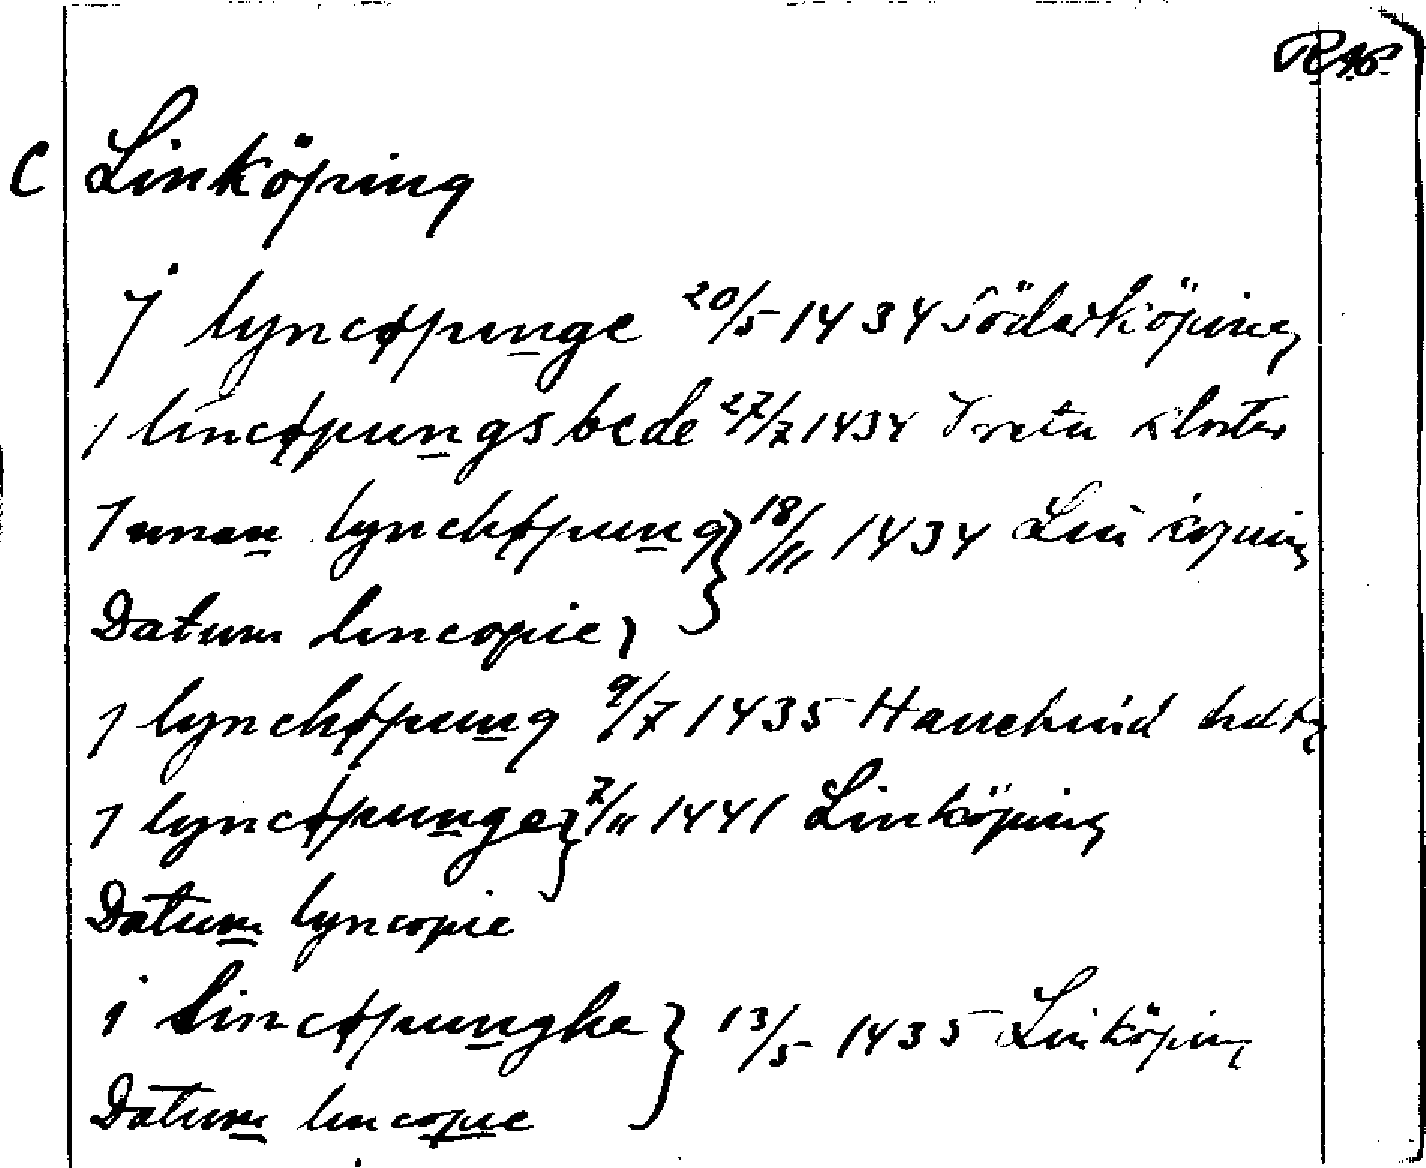 RAP
C Linköping
J lyncøpunge 20/5 1434 Söderköping
j lincøpungs bede 27/7 1434 Vreta kloster
Innan lynchøpung } 18/11 1434 Linköping
Datum lincopie }
j lynchøpung 9/7 1435 Hanekind hdtg
j lyncøpunge } 7/11 1441 Linköping
Datum lyncopie
i lincøpunghe } 13/5 1435 Linköping
Datum lincopie